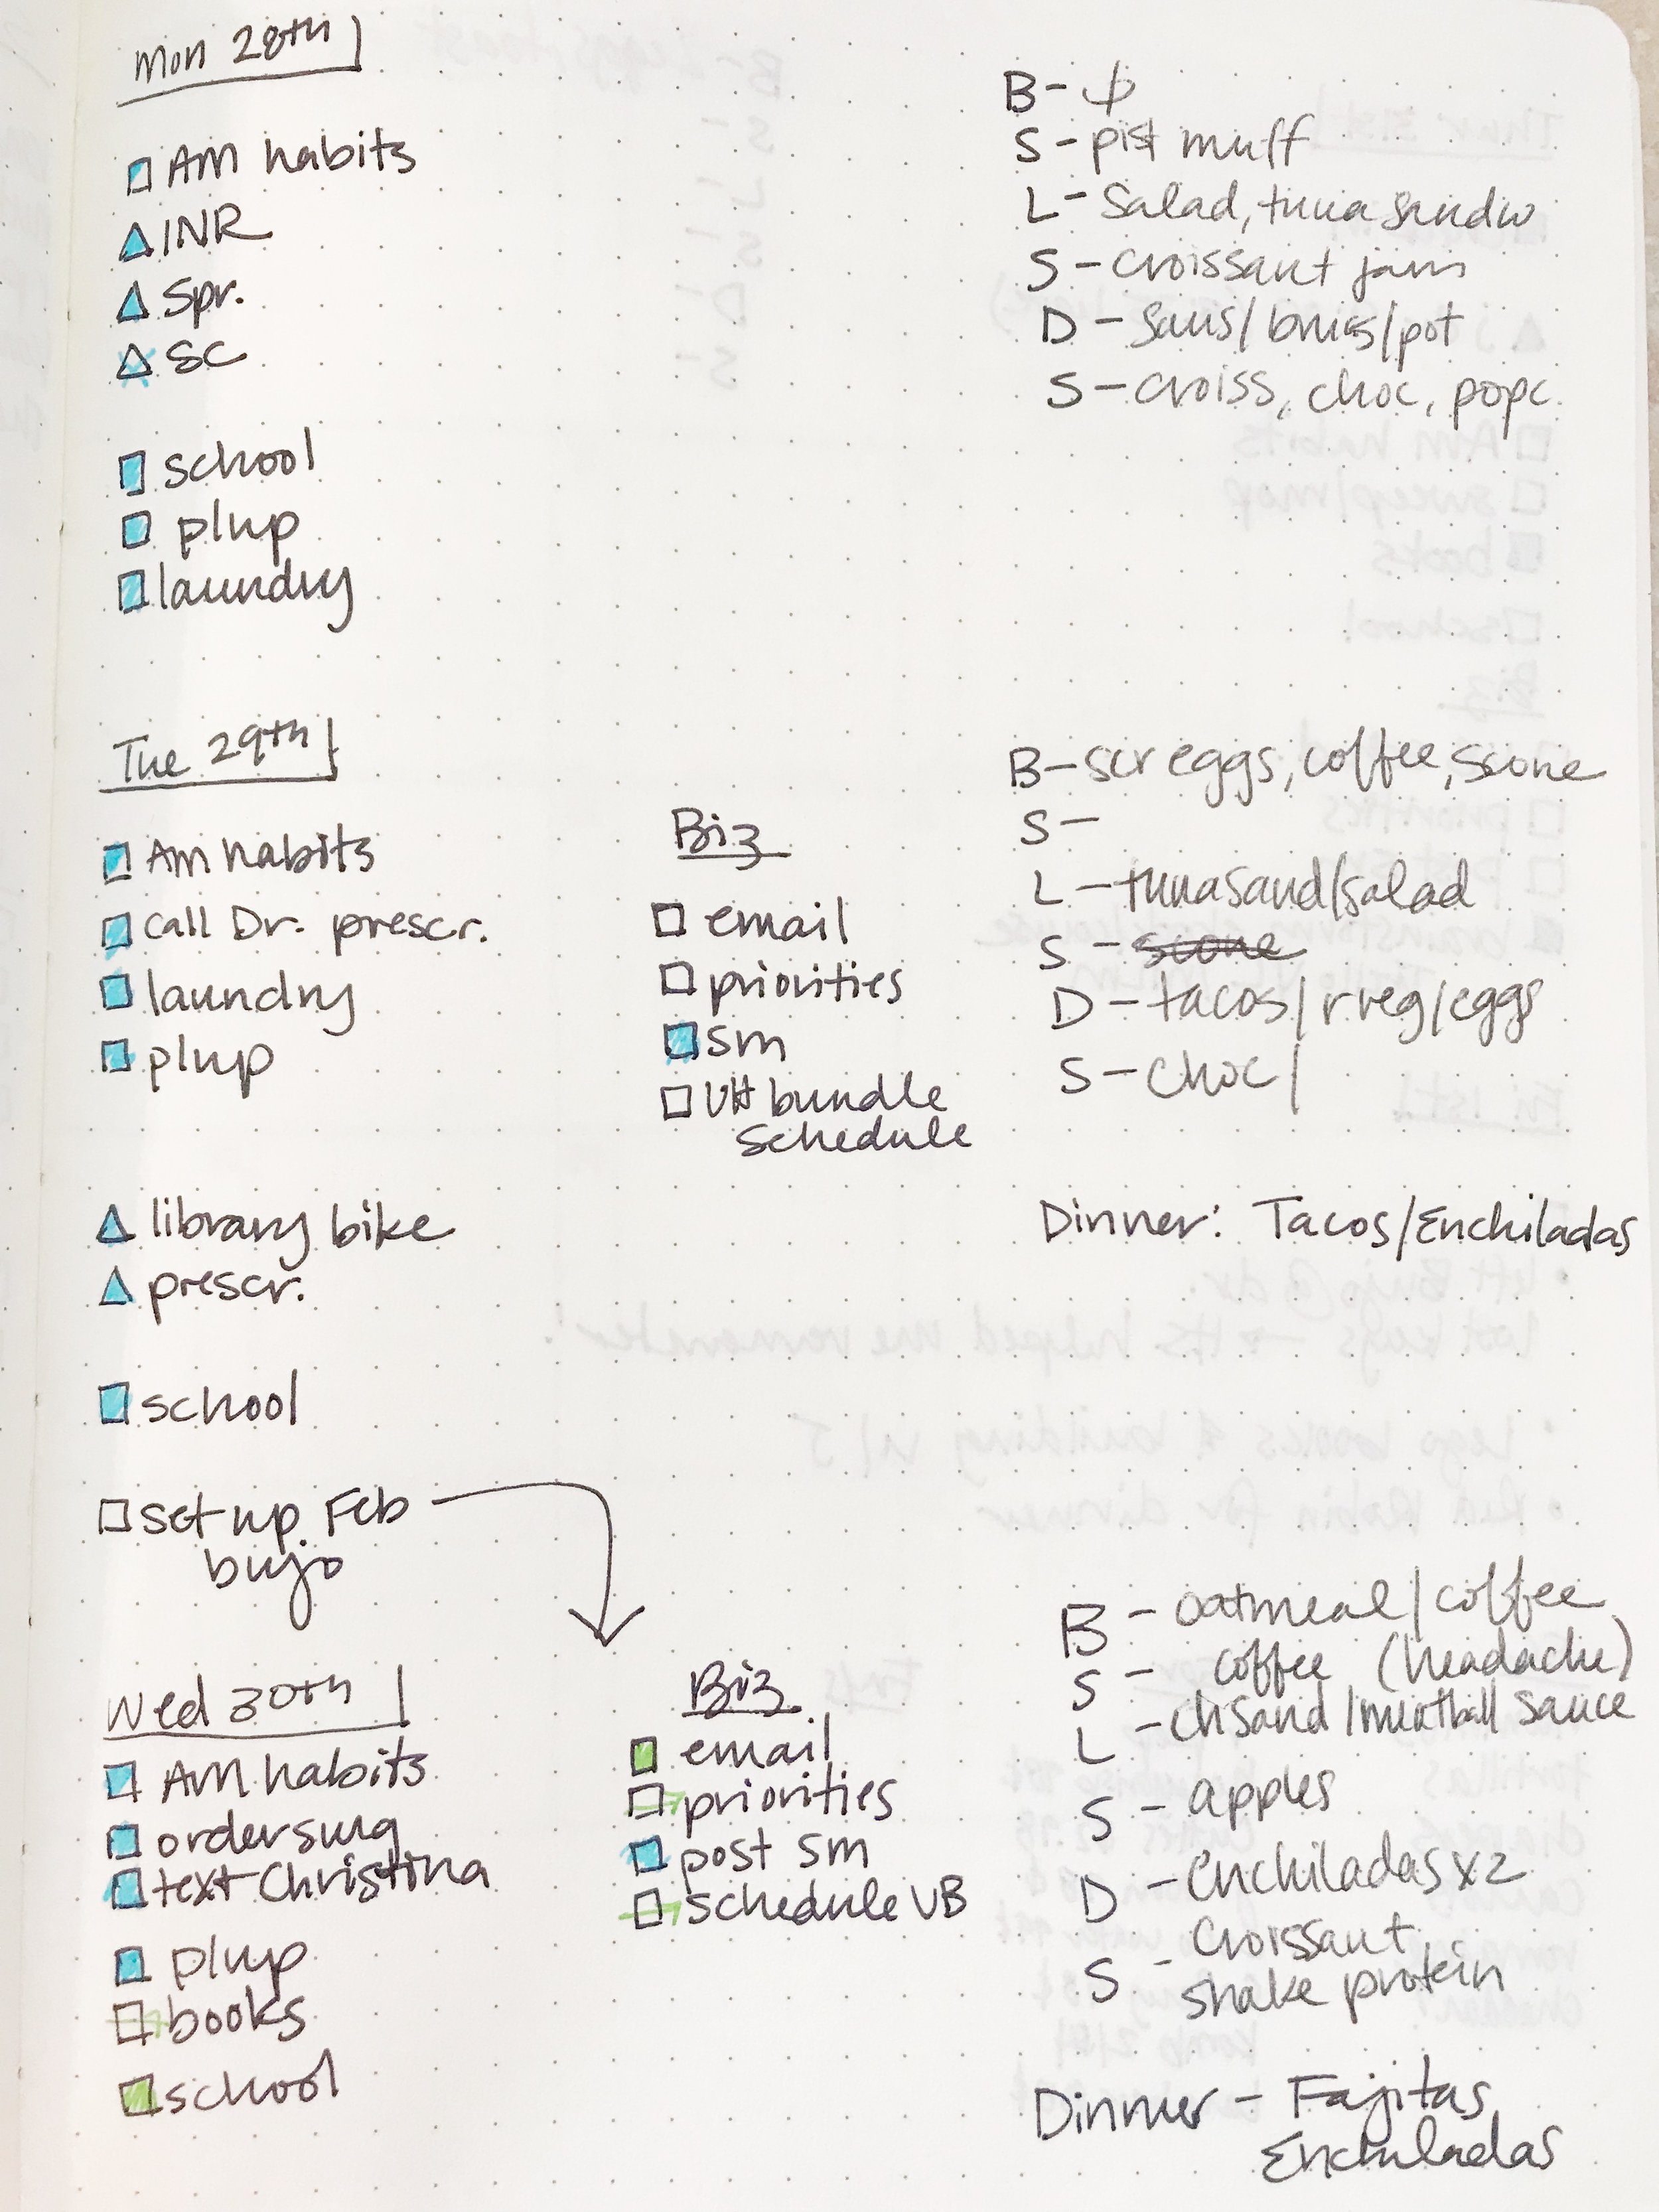 Mon 28th
AM habits
INR
Spr.
SC
school
plup
laundry
B-
S - pist muff
L - Salad, tuna sandw
S - croissant jam
D - saus/
/pot
S - croiss, choc, popc.
Tue 29th
AM habits
call Dr. prescr.
laundry
plup
library bike
prescr.
school
set up Feb
bujo
Biz
email
priorities
sm
UH bundle
schedule
B - scr eggs, coffee, scone
S -
L - tuna sand/salad
S - scone
D - tacos/r veg/eggs
S - choc/
Dinner: Tacos/Enchiladas
Wed 30th
AM habits
order smg
text Christina
plup
books
school
Biz
email
priorities
post sm
schedule VB
B - oatmeal/coffee
S - coffee (headache)
L - ch sand/meatball sauce
S - apples
D - enchiladas x2
S - croissant,
shake protein
Dinner - Fajitas
Enchiladas